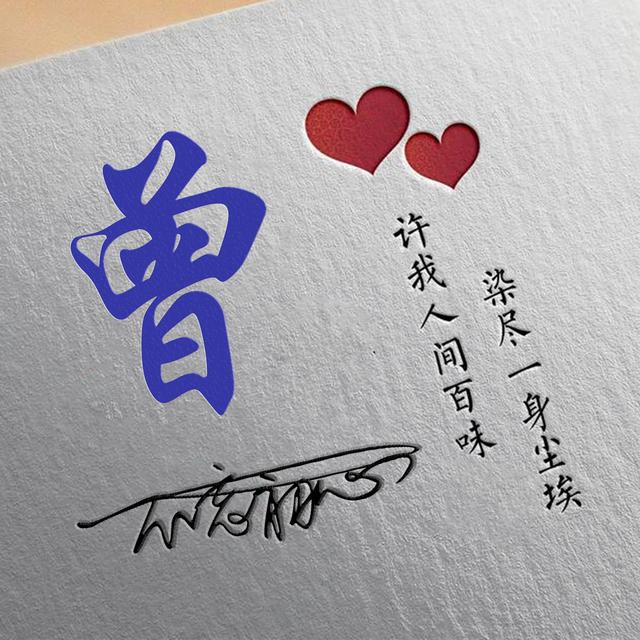 曾
许我人间百味
染尽一身尘埃